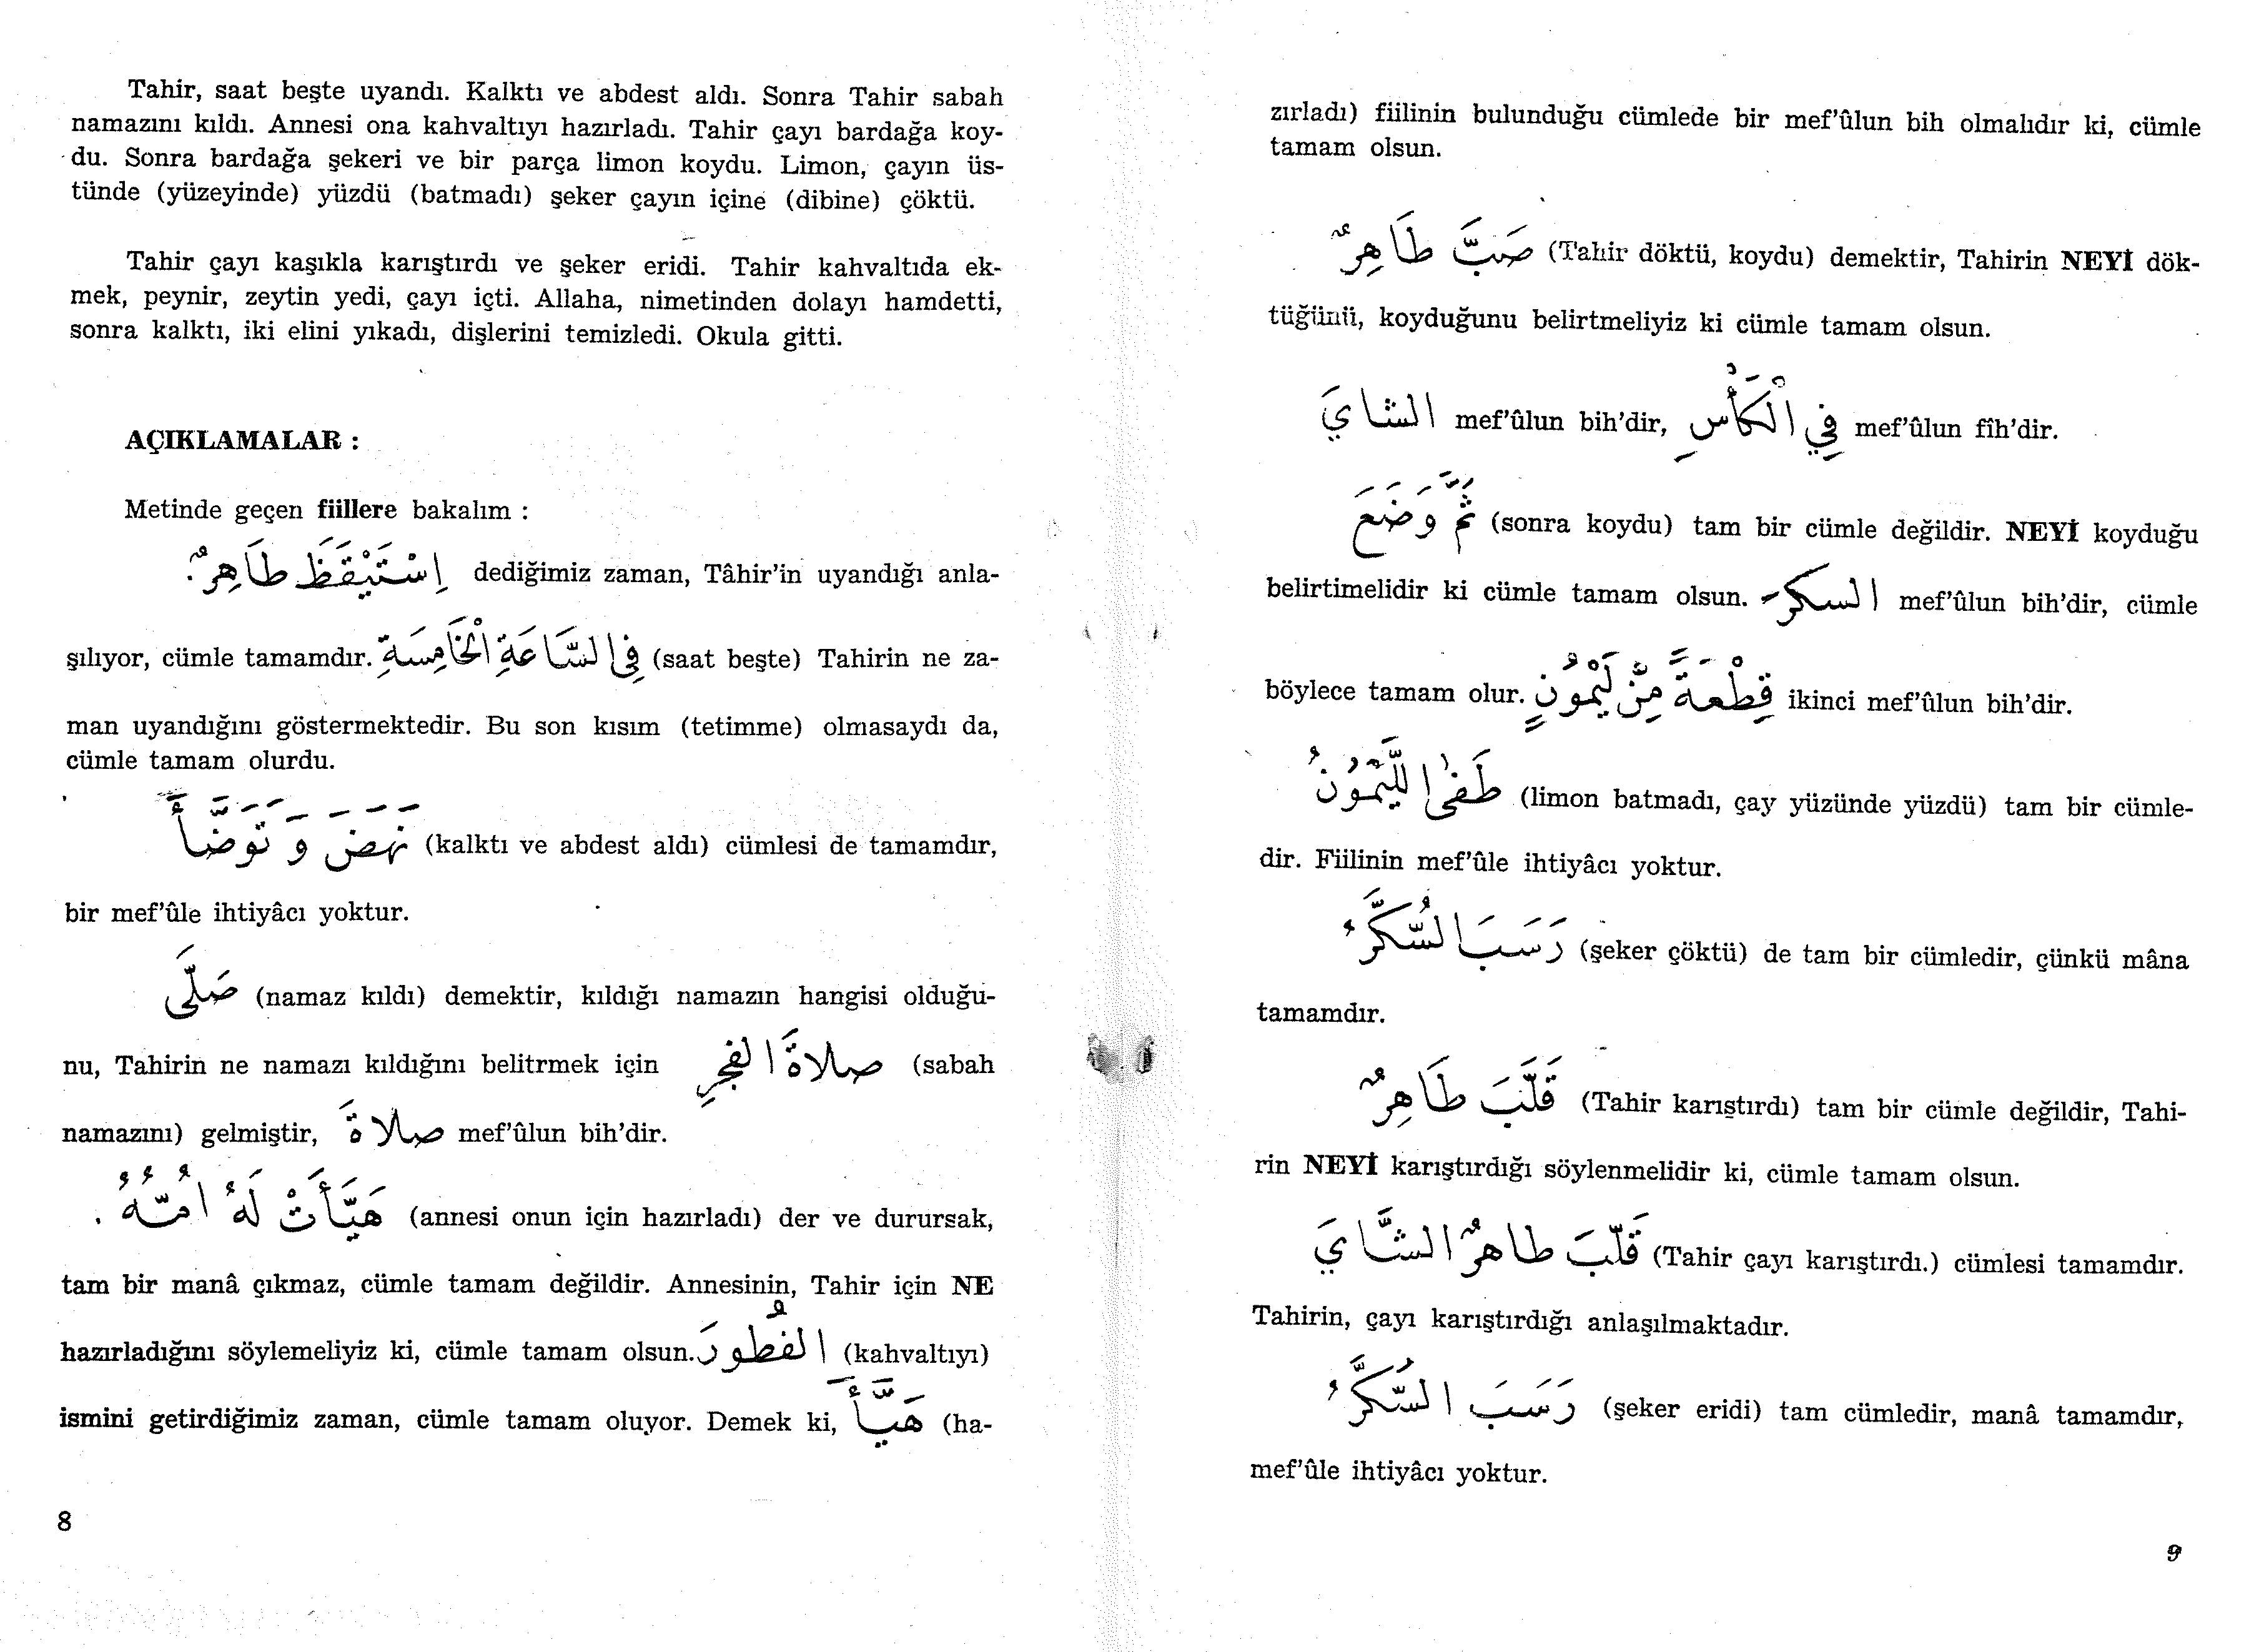 Tahir, saat beşte uyandı. Kalktı ve abdest aldı. Sonra Tahir sabah
namazını kıldı. Annesi ona kahvaltıyı hazırladı. Tahir çayı bardağa koy-
du. Sonra bardağa şekeri ve bir parça limon koydu. Limon, çayın üs-
tünde (yüzeyinde) yüzdü (batmadı) şeker çayın içine (dibine) çöktü.
Tahir çayı kaşıkla karıştırdı ve şeker eridi. Tahir kahvaltıda ek-
mek, peynir, zeytin yedi, çayı içti. Allaha, nimetinden dolayı hamdetti,
sonra kalktı, iki elini yıkadı, dişlerini temizledi. Okula gitti.
AÇIKLAMALAR :
Metinde geçen fiillere bakalım :
إِسْتَيْقَظَ طَاهِرٌ. dediğimiz zaman, Tâhir'in uyandığı anla-
şılıyor, cümle tamamdır. فِي السَّاعَةِ الْخَامِسَةِ (saat beşte) Tahirin ne za-
man uyandığını göstermektedir. Bu son kısım (tetimme) olmasaydı da,
cümle tamam olurdu.
نَهَضَ وَ تَوَضَّأَ (kalktı ve abdest aldı) cümlesi de tamamdır,
bir mef'ûle ihtiyâcı yoktur.
صَلَّى (namaz kıldı) demektir, kıldığı namazın hangisi olduğu-
nu, Tahirin ne namazı kıldığını belitrmek için صلاةَ الفجرِ (sabah
namazını) gelmiştir, صلاةَ mef'ûlun bih'dir.
هَيَّأَتْ لَهُ اُمُّهُ . (annesi onun için hazırladı) der ve durursak,
tam bir manâ çıkmaz, cümle tamam değildir. Annesinin, Tahir için NE
hazırladığını söylemeliyiz ki, cümle tamam olsun. الفُطُورَ (kahvaltıyı)
ismini getirdiğimiz zaman, cümle tamam oluyor. Demek ki, هَيَّأَ (ha-
8
zırladı) fiilinin bulunduğu cümlede bir mef'ûlun bih olmalıdır ki, cümle
tamam olsun.
صَبَّ طَاهِرٌ (Tahir döktü, koydu) demektir, Tahirin NEYİ dök-
tüğünü, koyduğunu belirtmeliyiz ki cümle tamam olsun.
الشايَ mef'ûlun bih'dir, فِي الْكَأْسِ mef'ûlun fîh'dir.
ثُمَّ وَضَعَ (sonra koydu) tam bir cümle değildir. NEYİ koyduğu
belirtimelidir ki cümle tamam olsun. السكرَ mef'ûlun bih'dir, cümle
böylece tamam olur. قِطْعَةً مِنْ لَيْمُونٍ ikinci mef'ûlun bih'dir.
طَفَى اللَّيْمُونُ (limon batmadı, çay yüzünde yüzdü) tam bir cümle-
dir. Fiilinin mef'ûle ihtiyâcı yoktur.
رَسَبَ السُّكَّرُ (şeker çöktü) de tam bir cümledir, çünkü mâna
tamamdır.
قَلَّبَ طَاهِرٌ (Tahir karıştırdı) tam bir cümle değildir, Tahi-
rin NEYİ karıştırdığı söylenmelidir ki, cümle tamam olsun.
قَلّبَ طاهرٌ الشَّايَ (Tahir çayı karıştırdı.) cümlesi tamamdır.
Tahirin, çayı karıştırdığı anlaşılmaktadır.
رَسَبَ السُّكَّرُ (şeker eridi) tam cümledir, manâ tamamdır,
mef'ûle ihtiyâcı yoktur.
9